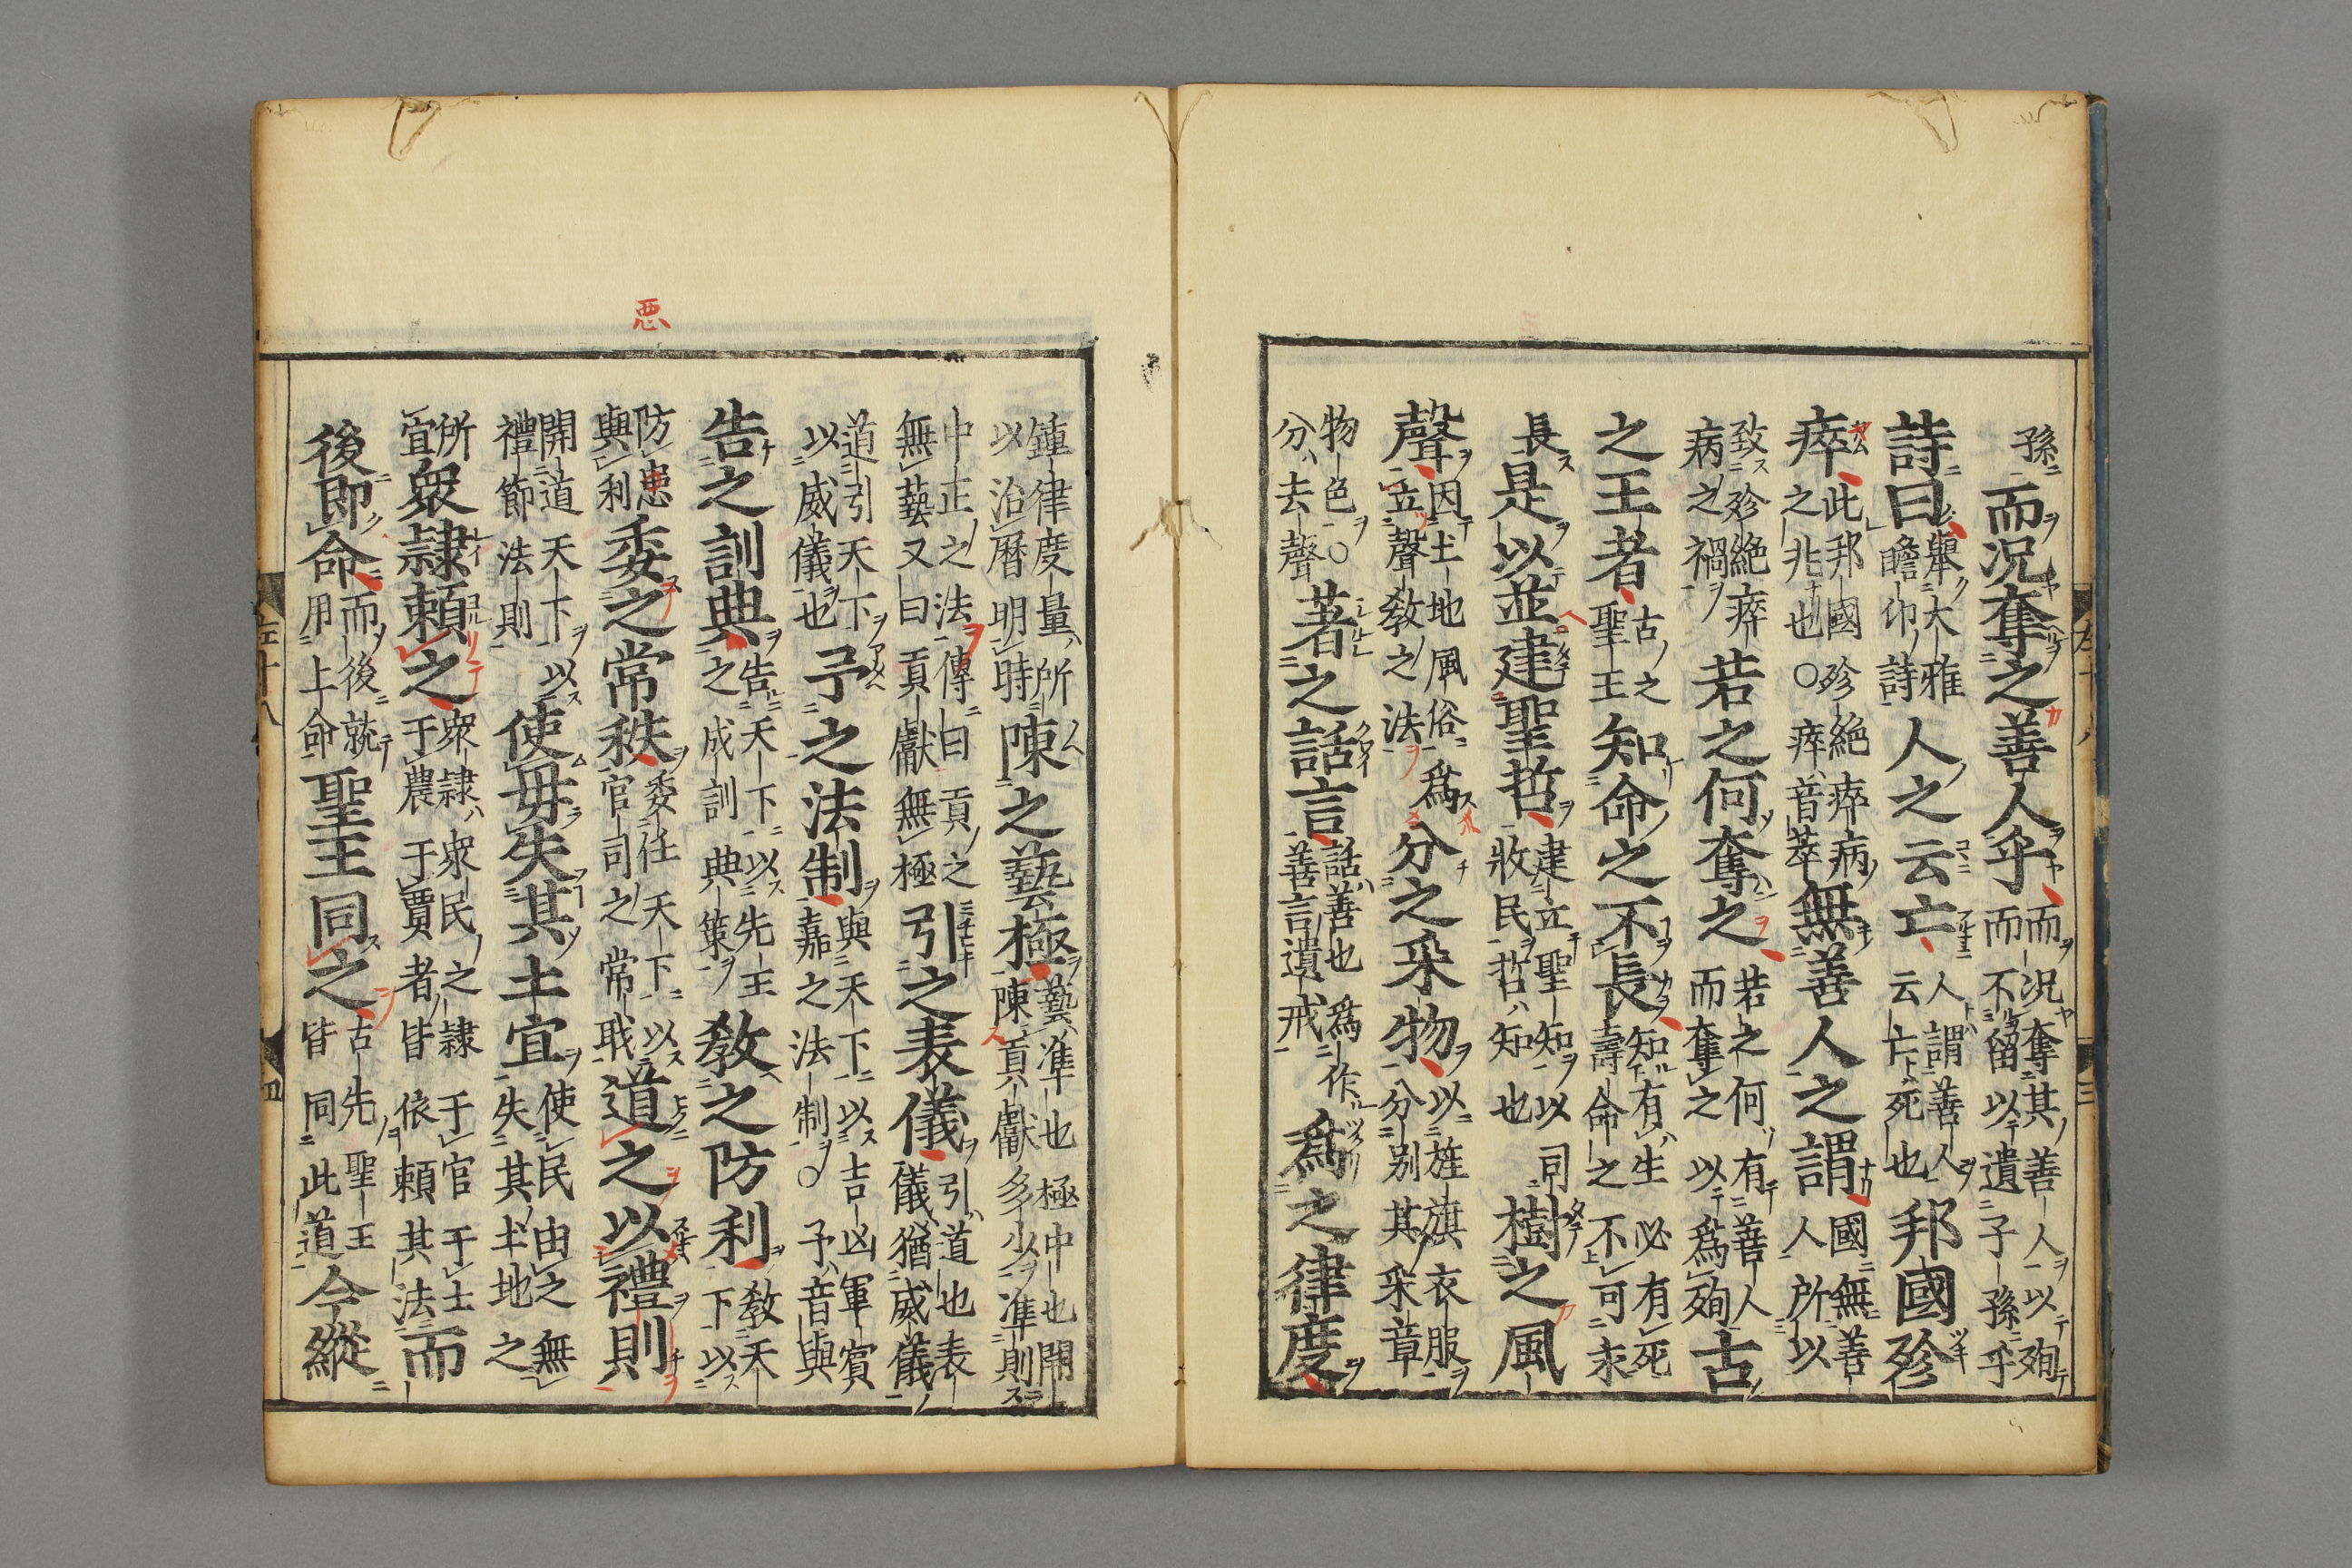 孫
而况奪之善人乎 而况奪其善人以殉而不留以遺子孫乎
詩曰 舉大雅瞻卬詩 人之云亡 人謂善人云亡死也 邦國殄
瘁 此邦國殄絶瘁病之兆也○瘁音萃 無善人之謂 國無善人所以
致殄絶瘁病之禍 若之何奪之 若之何有善人而奪之以爲殉 古
之王者 古之聖王 知命之不長 知有生必有死壽命之不可求
長 是以並建聖哲 建立聖知以司牧民哲知也 樹之風
聲 因土地風俗爲立聲教之法 分之采物 以旌旗衣服分别其采章
物色○分去聲 著之話言 話善也爲作善言遺戒 爲之律度
左十八 三
鍾律度量所以治曆明時 陳之藝極 藝準也極中也開陳貢獻多少準則
中正之法傳曰貢之無藝又曰貢獻無極 引之表儀 引道也表儀猶威儀
道引天下以威儀也 予之法制 與天下以吉凶軍賓嘉之法制○予音與
告之訓典 告天下以先王之成訓典策 教之防利 教天下以
悪
防患與利 委之常秩 委任天下以官司之常職 道之以禮則
開道天下以禮節法則 使毋失其土宜 使民由之無失其土地之
所宜 衆隷賴之 衆隷衆民之隷于官于士于農于賈者皆依頼其法 而
後即命 而後就用上命 聖王同之 古先聖王皆同此道 今縱
左十八 四